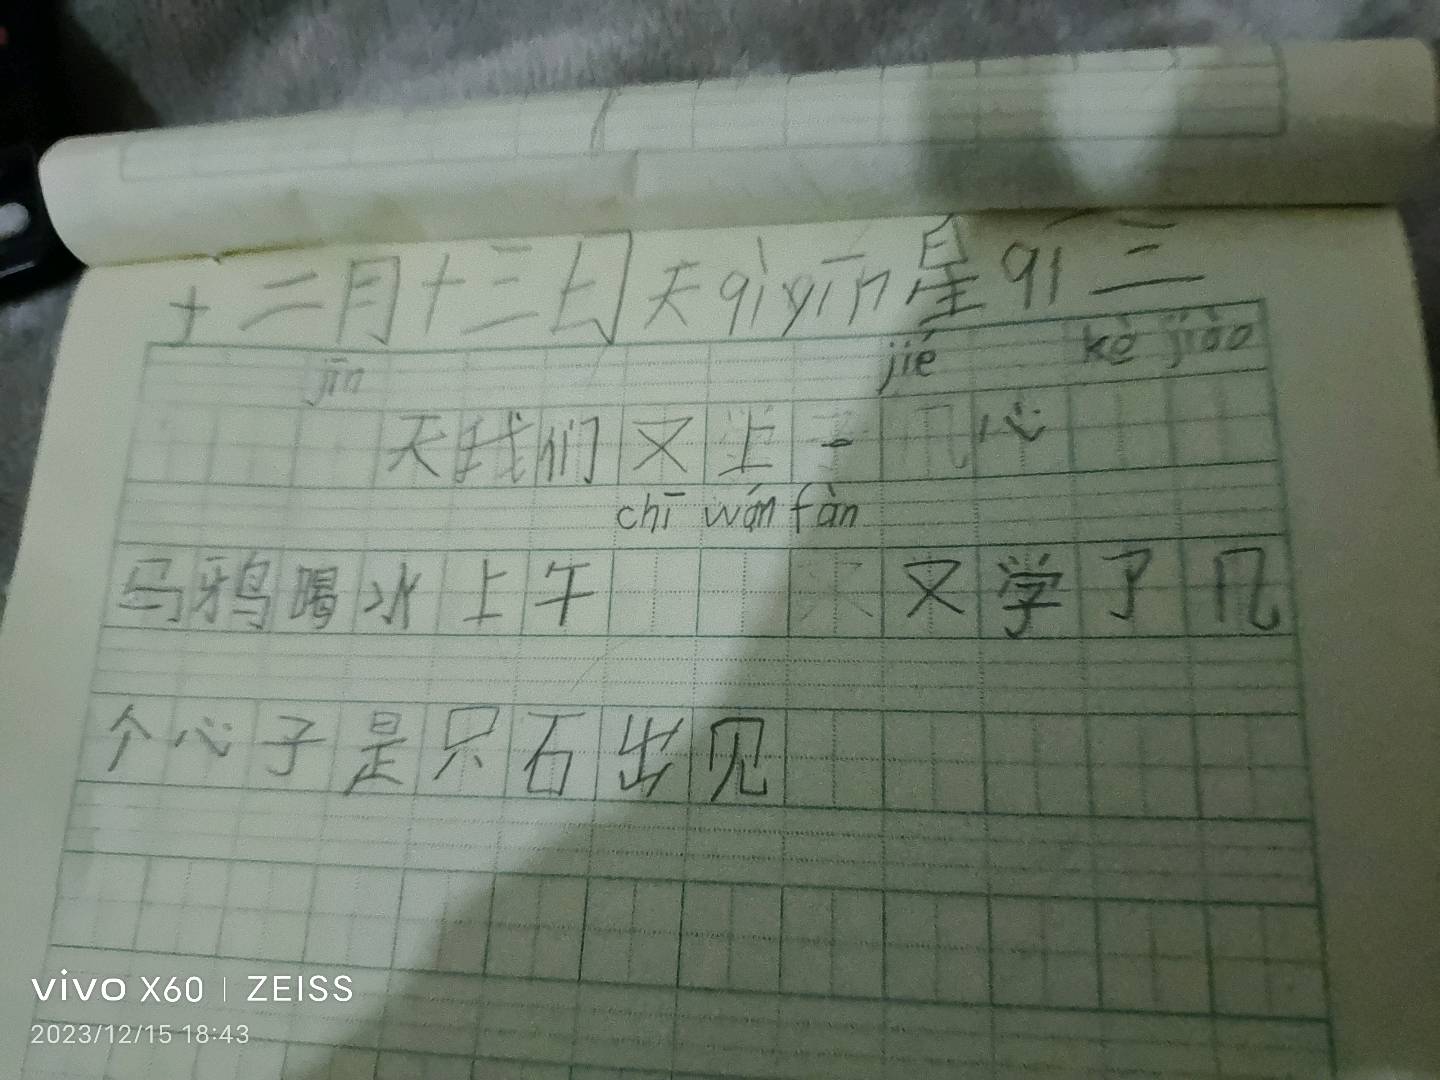 十二月十三日天qìyīn星qī三
jīn天我们又上一jié心kè jiào
马鸦喝水上午chī wán fàn又学了几
个心子是只石出见
vivo X60 | ZEISS
2023/12/15 18:43